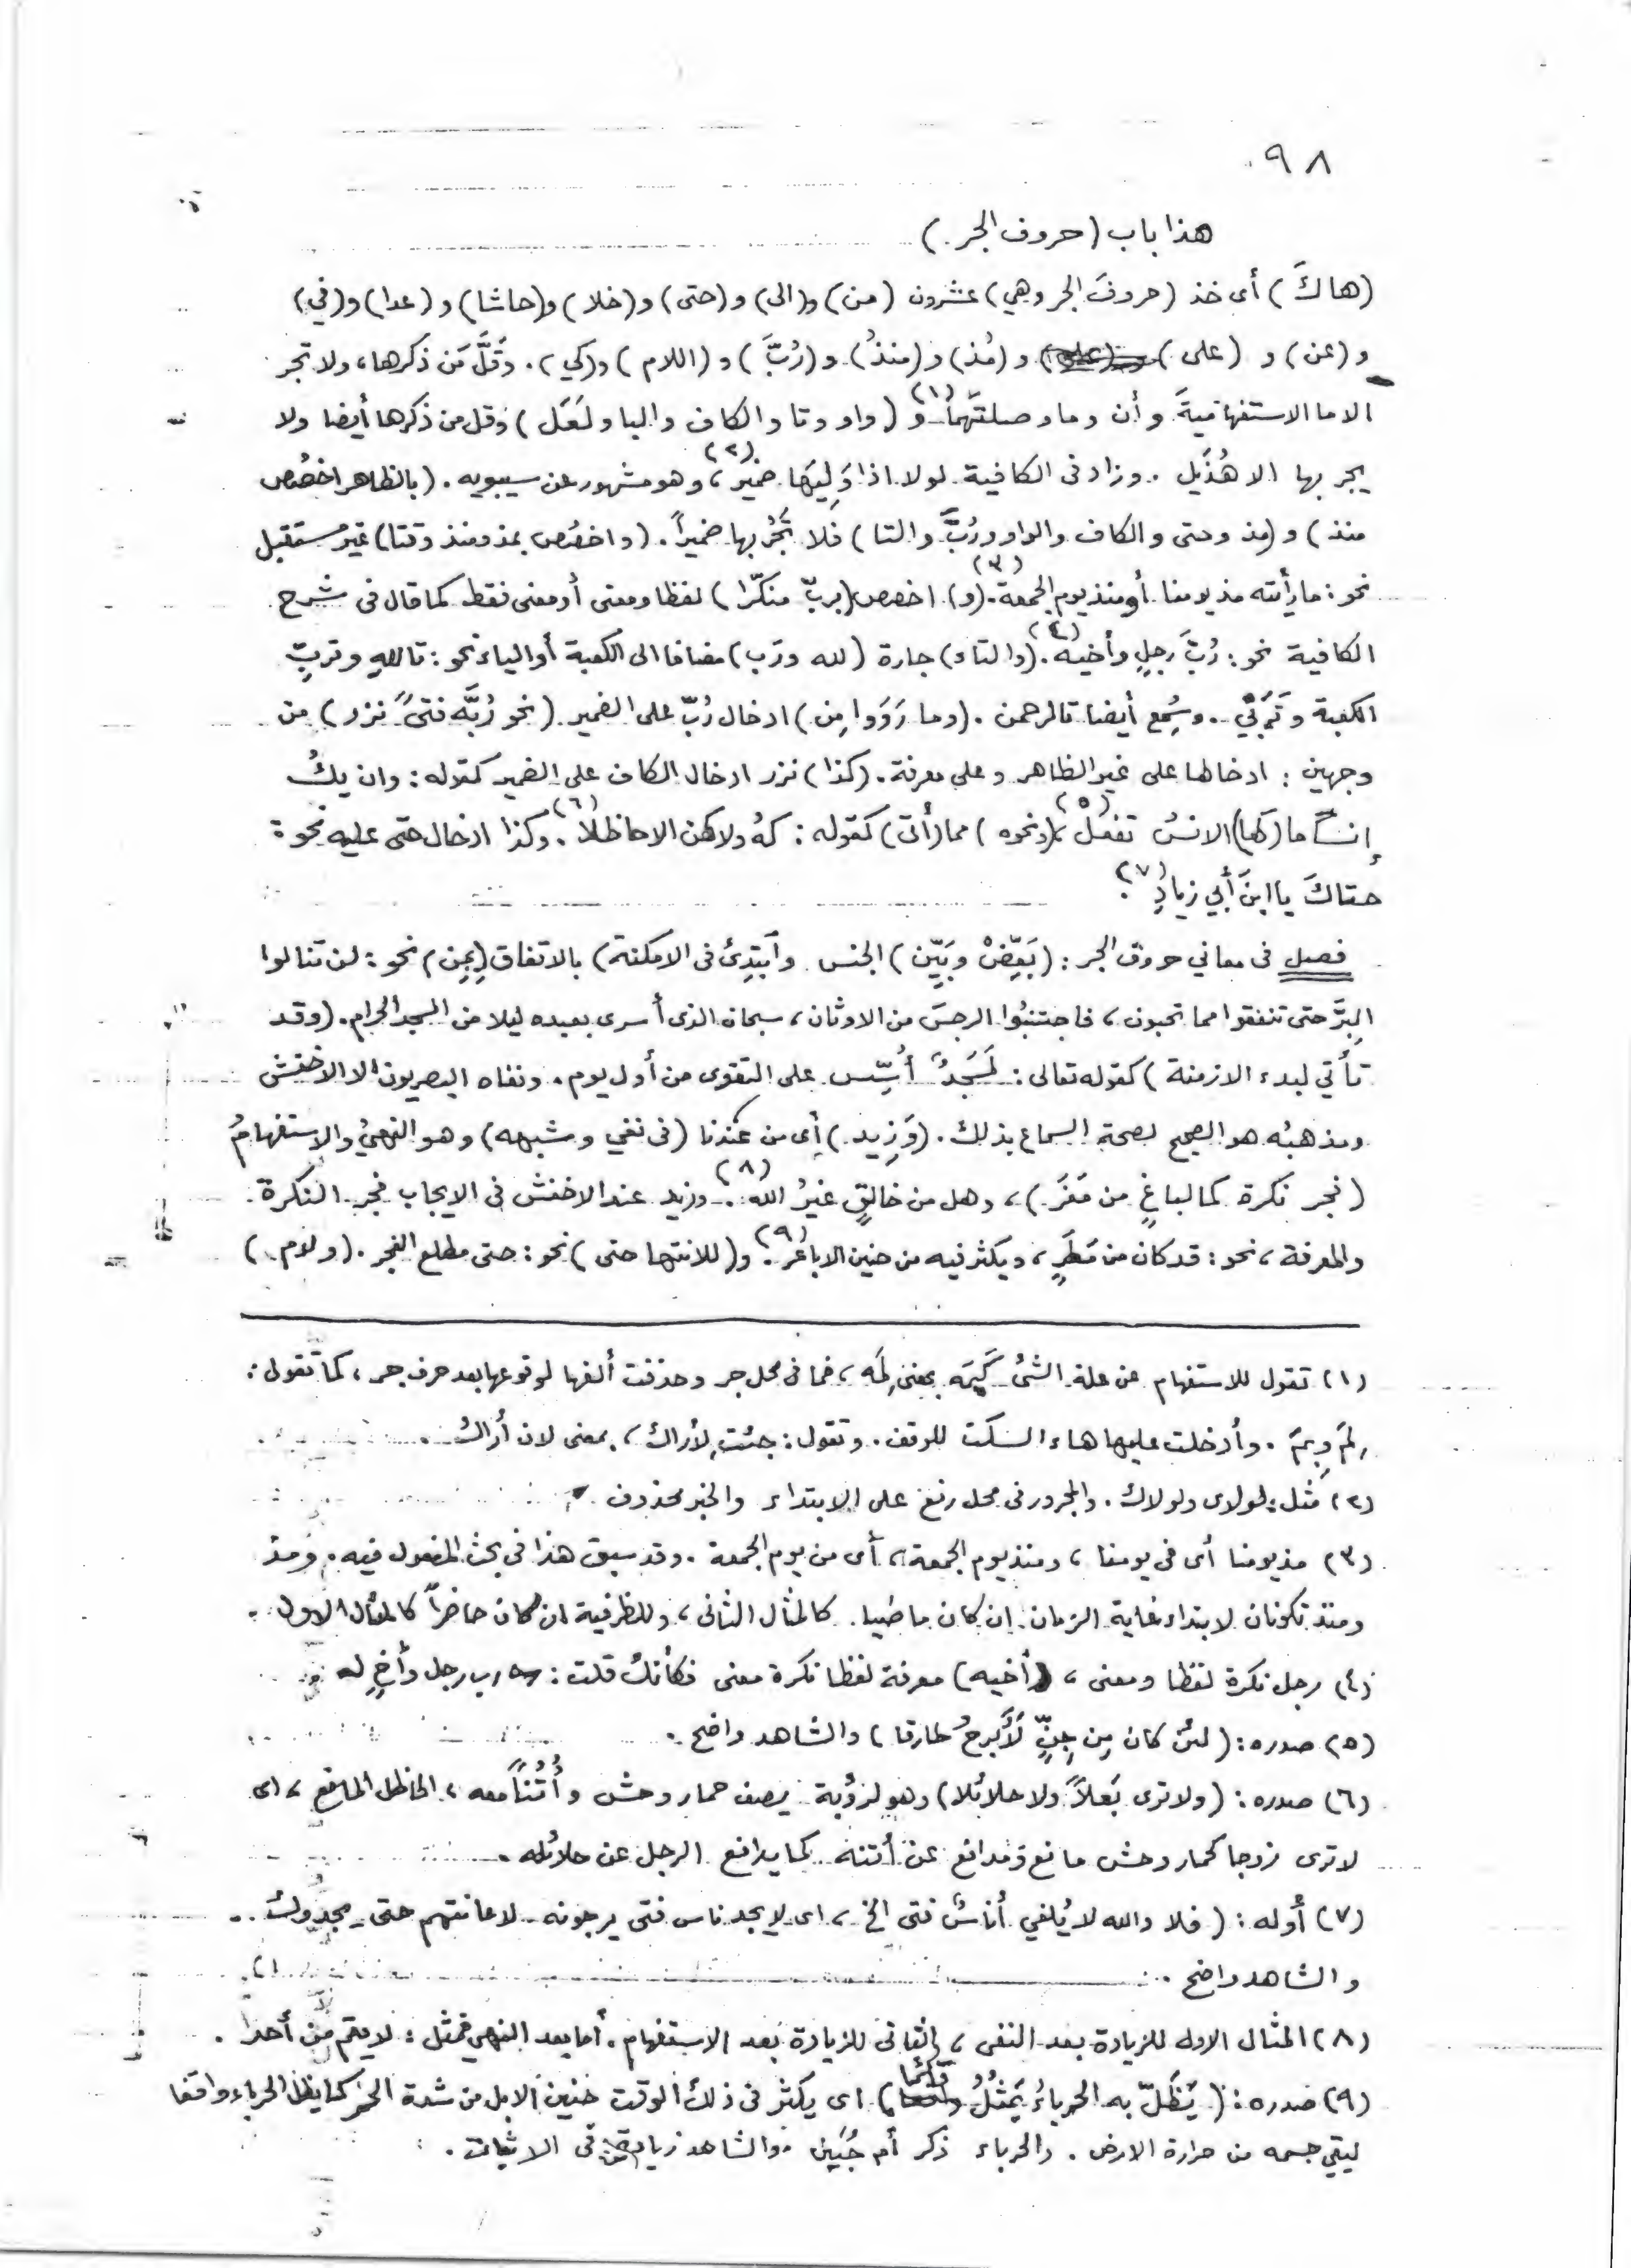 ٩٨
هذا باب (حروف الجر)
(هاكَ) أى خذ (حروفَ الجر وهي) عشرون (من) و(الى) و(حتى) و(خلا) و(حاشا) و(عدا) و(في)
و(عن) و (على) و (مُذ) و(منذُ) و(رُبَّ) و (اللام) و(كي). وقَلَّ مَن ذكرها، ولا تجر
الا ما الاستفهاميةَ وأن وما وصلتَهما (١) و (واو وتا والكاف والبا ولعَل) وقل من ذكرها أيضا ولا
يجر بها الا هُذَيل. وزاد فى الكافية لولا اذا وَلِيَها ضميرٌ (٢)، وهو مشهور عن سيبويه. (بالظاهر اخصُص
منذ) و(مذ وحتى والكاف والواو ورُبَّ والتا) فلا تَجُرْ بها ضميراً. (واخصُص بمذ ومنذ وقتا) غيرَ مستقبل
نحو: ما رأيته مذ يومنا أو منذ يوم الجمعة (٣). (و) اخصص (بربّ منكّرا) لفظا ومعنى أو معنى فقط كما قال فى شرح
الكافية نحو: رُبَّ رجلٍ وأخيه (٤). (والتاء) جارة (لله ورَب) مضافا الى الكعبة أو الياء نحو: تاللهِ وتربِّ
الكعبة وتَرَبِّي. وسُمِع أيضا تالرحمن. (وما رَوَوا مِن) ادخال رُبّ على الضمير (نحو رُبَّه فتىً نزر) من
وجهين: ادخالها على غير الظاهر وعلى معرفة. (كذا) نزر ادخال الكاف على الضمير كقوله: وان يكُ
إنساً ما (كها) الانسُ تفعلُ (٥)، (ونحوه) مما (أتى) كقوله: كهُ ولا كهن الا حاظلاً (٦). وكذا ادخال حتى عليه نحو:
حتاكَ يا ابنَ أبي زيادِ (٧).
فصل فى معاني حروف الجر: (بَعِّضْ وبَيِّن) الجنس (وابتدِئ فى الامكنة) بالاتفاق (بِمِن) نحو: لن تنالوا
البِرَّ حتى تنفقوا مما تحبون، فاجتنبُوا الرجسَ من الاوثان، سبحان الذى أسرى بعبده ليلا من المسجد الحرام. (وقد
تأتي لبدء الازمنة) كقوله تعالى: لَمسجدٌ أُسِّس على التقوى من أول يوم. ونفاه البصريون الا الاخفش
ومذهبُه هو الصحيح لصحة السماع بذلك. (وَزِيد) أى من عندنا (فى نفي وشبهه) وهو النهيُ والاستفهامُ
(فجر نكرة كما لباغٍ من مَفَر)، وهل من خالقٍ غيرُ الله (٨). وزيد عند الاخفش فى الايجاب فجر النكرة
والمعرفة، نحو: قد كان من مَطَرٍ، ويكثر فيه من حنين الاباعر (٩). و(للانتها حتى) نحو: حتى مطلع الفجر. (ولام)
(١) تقول للاستفهام عن علة الشئ كَيمَه بمعنى لِمَه، فما فى محل جر وحذفت ألفها لوقوعها بعد حرف جر، كما تقول:
لِمَ وبِمَ. وأدخلت عليها هاء السكت للوقف. وتقول: جئت لأراك، بمعنى لان أراك.
(٢) مثل: لولاى ولولاك. والمجرور فى محل رفع على الابتداء والخبر محذوف.
(٣) مذ يومنا أى فى يومنا، ومنذ يوم الجمعة، أى من يوم الجمعة. وقد سبق هذا في بحث المفعول فيه. ومذ
ومنذ تكونان لابتداء غاية الزمان إن كان ماضيا كالمثال الثانى، وللظرفية ان كان حاضراً كالمثال الاول.
(٤) رجل نكرة لفظا ومعنى، (أخيه) معرفة لفظا نكرة معنى فكأنك قلت: رب رجل وأخٍ له
(٥) صدره: (لئن كان مِن جِنٍّ لَأبرحُ طارقا) والشاهد واضح.
(٦) صدره: (ولا ترى بَعلاً ولا حلائلا) وهو لرؤبة يصف حمار وحش وأُتُناً معه، الحاظل المانع، اى
لا ترى زوجا كحمار وحش مانع ومدافع عن أتنه كما يدافع الرجل عن حلائله.
(٧) أوله: (فلا والله لا يُلفي أناسٌ فتى الخ، اى لا يجد ناس فتى يرجونه لاعانتهم حتى يجدوك.
والشاهد واضح.
(٨) المثال الاول للزيادة بعد النفى، والثانى للزيادة بعد الاستفهام. أما بعد النهي فمثل: لا يقم من أحد.
(٩) صدره: (يَظَلّ به الحرباءُ يَمثُلُ قائما) اى يكثر فى ذلك الوقت حنين الابل من شدة الحر كما يظل الحرباء واقفا
ليقي جسمه من حرارة الارض. والحرباء ذكر أم حُبَين. والشاهد زيادة من فى الاثبات.